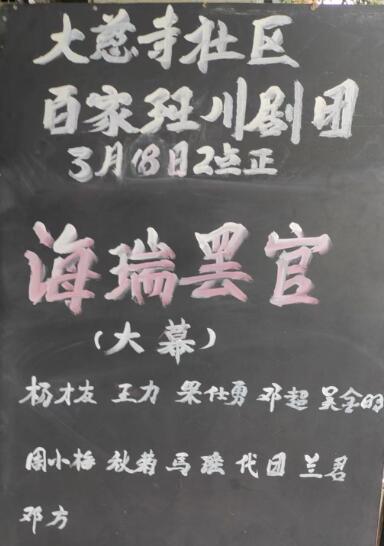 大慈寺社区
百家班川剧团
3月18日2点正
海瑞罢官
(大幕)
杨才友 王力 梁仕勇 邓超 吴金明
周小梅 秋菊 马瑶 代团 兰君
邓方